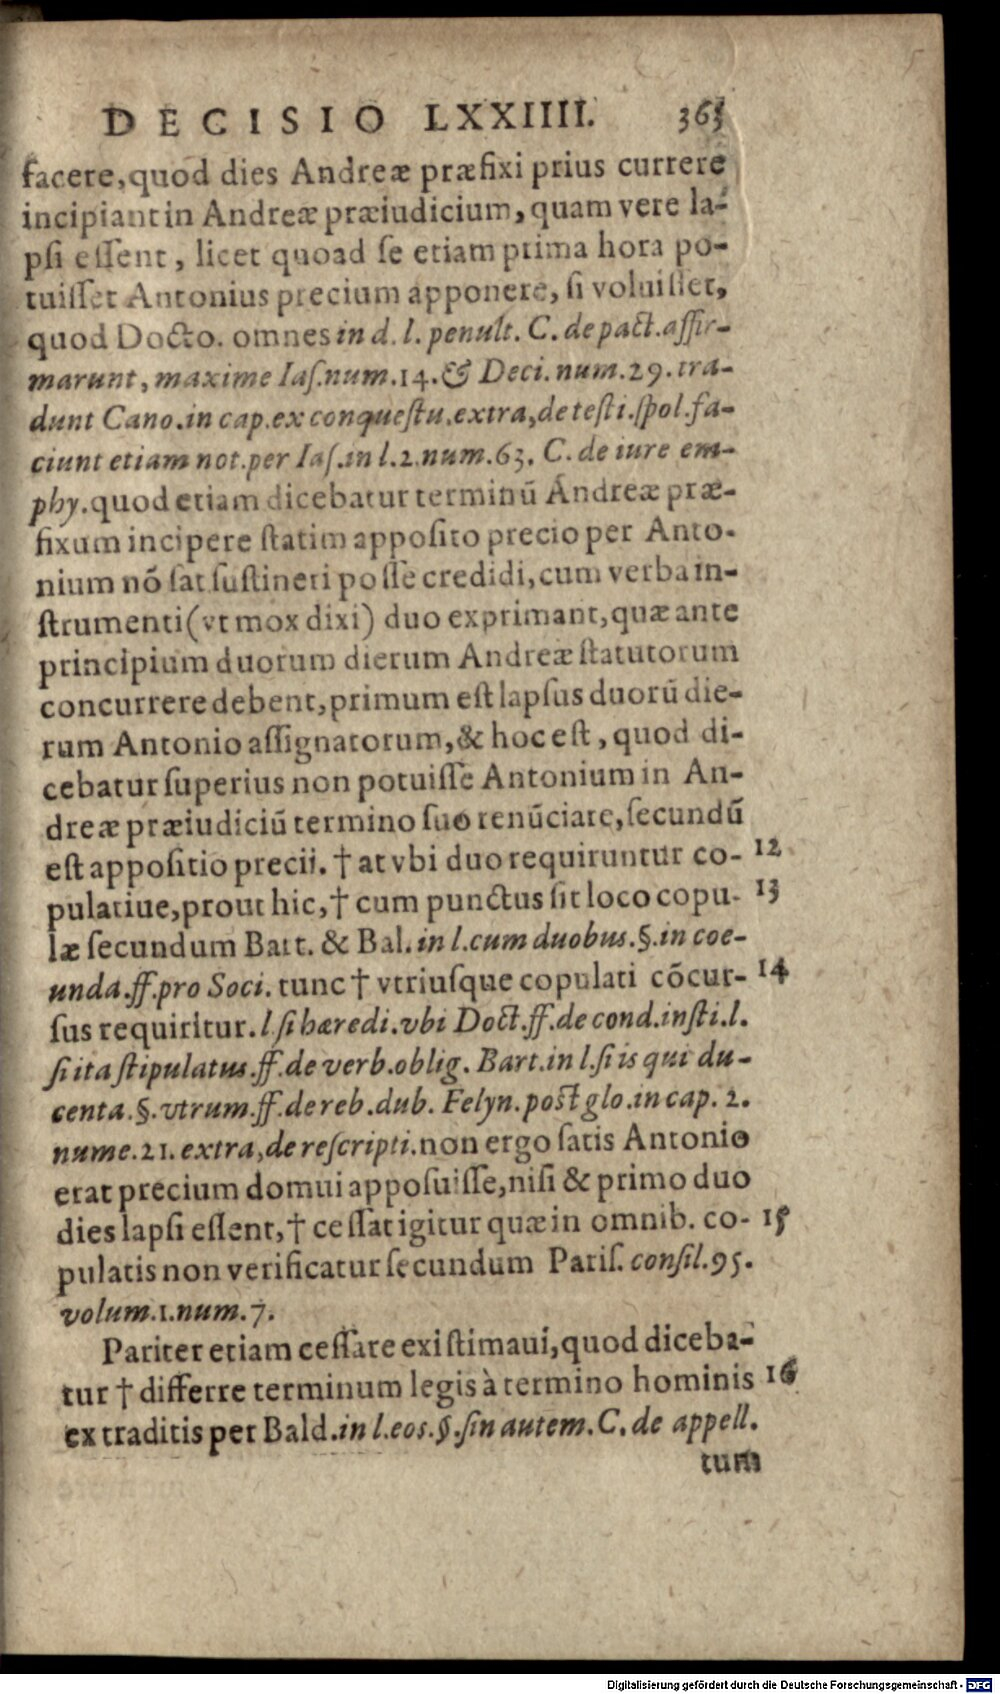 DECISIO LXXIIII. 363
facere, quod dies Andreæ præfixi prius currere
incipiant in Andreæ præiudicium, quam vere la-
psi eſſent, licet quoad ſe etiam prima hora po-
tuiſſet Antonius precium apponere, ſi voluiſſet,
quod Docto. omnes in d. l. penult. C. de pact. affir-
marunt, maxime Iaſ. num. 14. & Deci. num. 29. tra-
dunt Cano. in cap. ex conqueſtu. extra, de teſti. ſpol. fa-
ciunt etiam not. per Iaſ. in l. 2. num. 63. C. de iure em-
phy. quod etiam dicebatur terminũ Andreæ præ-
fixum incipere ſtatim appoſito precio per Anto-
nium nõ ſat ſuſtineri poſſe credidi, cum verba in-
ſtrumenti (vt mox dixi) duo exprimant, quæ ante
principium duorum dierum Andreæ ſtatutorum
concurrere debent, primum eſt lapſus duorũ die-
rum Antonio aſſignatorum, & hoc eſt, quod di-
cebatur ſuperius non potuiſſe Antonium in An-
dreæ præiudiciũ termino ſuo renũciare, ſecundũ
eſt appoſitio precii. † at vbi duo requiruntur co- 12
pulatiue, prout hic, † cum punctus ſit loco copu- 13
læ ſecundum Bart. & Bal. in l. cum duobus. §. in coe-
unda. ff. pro Soci. tunc † vtriuſque copulati cõcur- 14
ſus requiritur. l. ſi hæredi. vbi Doct. ff. de cond. inſti. l.
ſi ita ſtipulatus. ff. de verb. oblig. Bart. in l. ſi is qui du-
centa. §. vtrum. ff. de reb. dub. Felyn. poſt glo. in cap. 2.
nume. 21. extra, de reſcripti. non ergo ſatis Antonio
erat precium domui appoſuiſſe, niſi & primo duo
dies lapſi eſſent, † ceſſat igitur quæ in omnib. co- 15
pulatis non verificatur ſecundum Pariſ. conſil. 95.
volum. 1. num. 7.
Pariter etiam ceſſare exiſtimaui, quod diceba-
tur † differre terminum legis à termino hominis 16
ex traditis per Bald. in l. eos. §. ſin autem. C. de appell.
tum
Digitalisierung gefördert durch die Deutsche Forschungsgemeinschaft - DFG